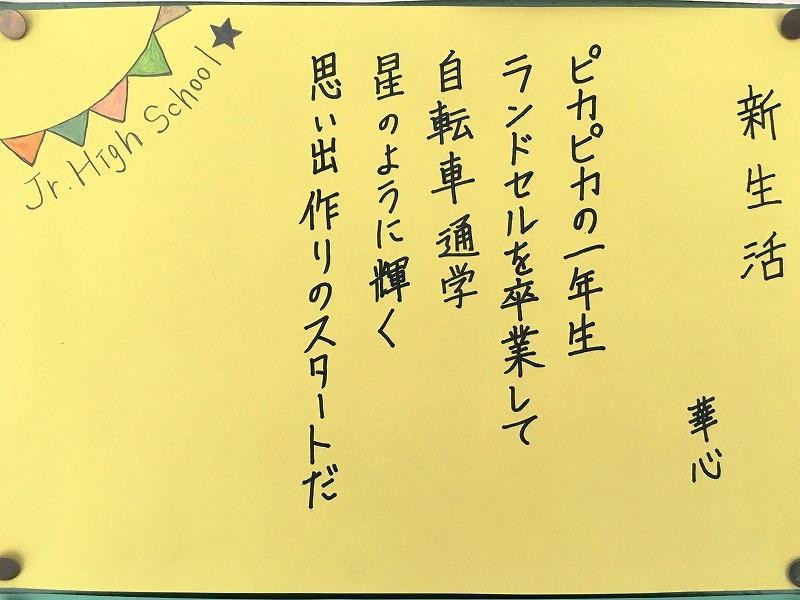 新生活
華心
ピカピカの一年生
ランドセルを卒業して
自転車通学
星のように輝く
思い出作りのスタートだ
Jr. High School